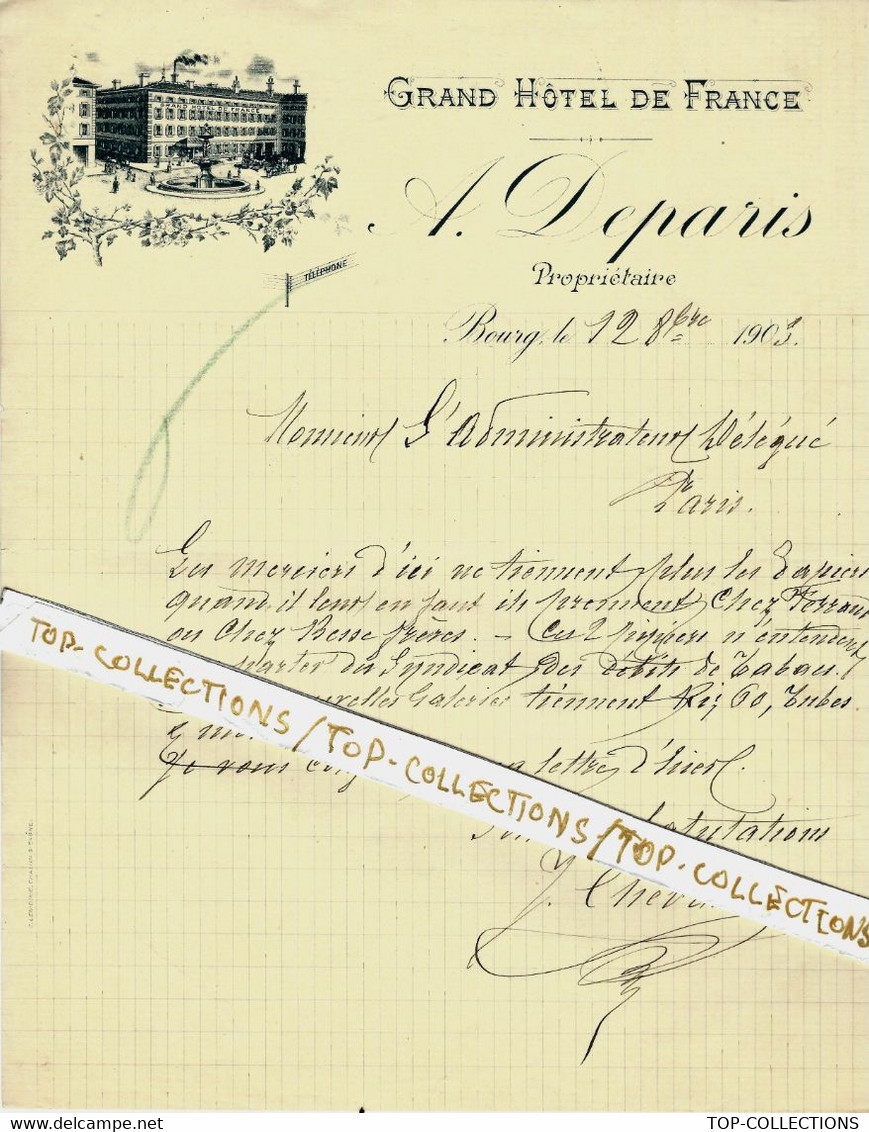 GRAND HOTEL DE FRANCE
GRAND HÔTEL DE FRANCE
A. Deparis
Propriétaire
TÉLÉPHONE
Bourg, le 12 8bre 1903.
Monsieur L'Administrateur Délégué
Paris.
Les merciers d'ici ne tiennent plus les Papiers
quand il leur en faut ils prennent chez Ferrand
ou chez Besse frères. – Ces 2 n'entendent
parler du Syndicat des débits de Tabacs.
Galeries tiennent Riz 60, Tubes.
Je vous lettre d'hier.
salutations
J. Chev
TOP-COLLECTIONS / TOP-COLLECTIONS / TOP-COLLECTIONS
TOP-COLLECTIONS